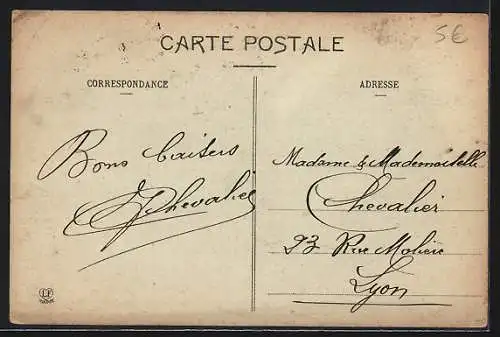 CARTE POSTALE
5€
CORRESPONDANCE
Bons baisers
Chevalier
ADRESSE
Madame & Mademoiselle
Chevalier
93 Rue Molière
Lyon